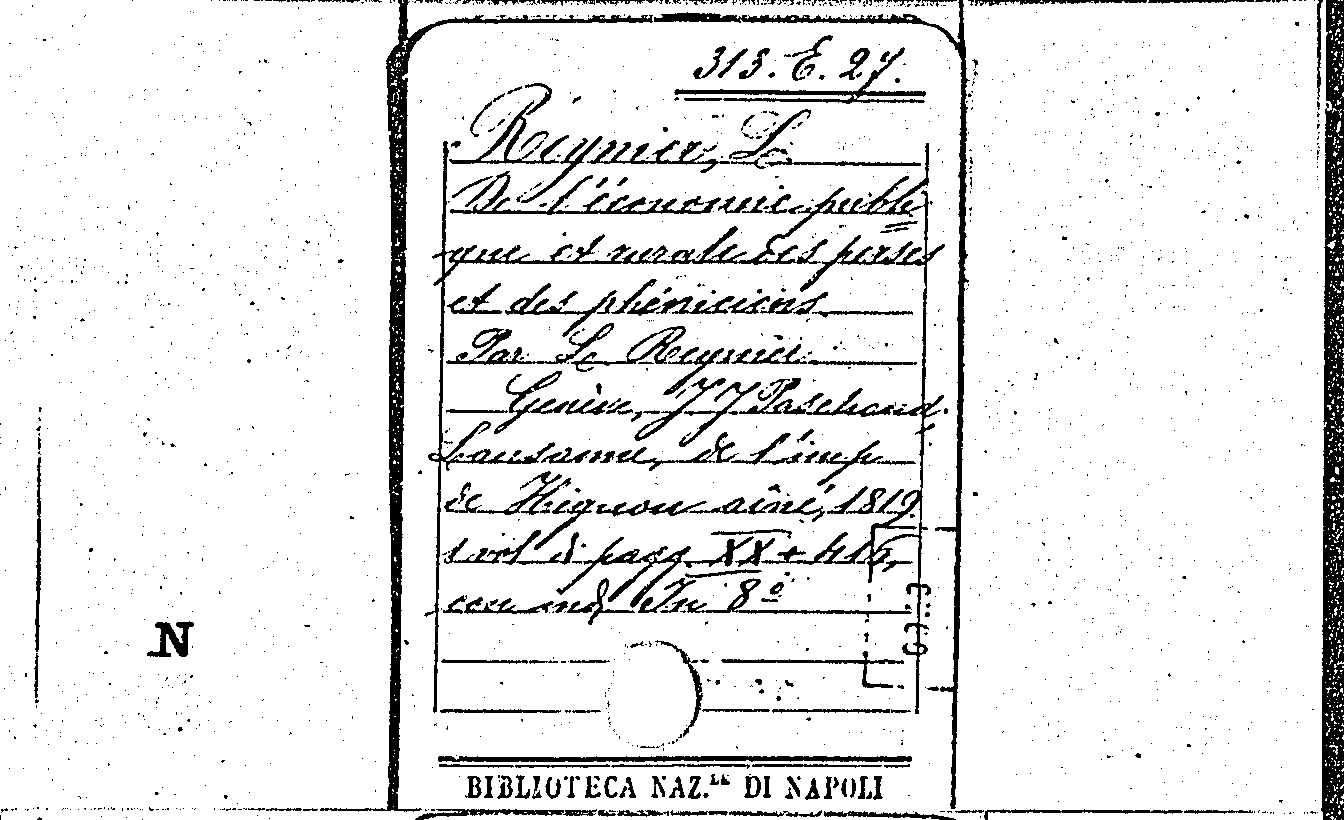 313. E. 27.
Reynier, L.
De l'économie publi
que et rurale des perses
et des phéniciens
Par L. Reynier
Genève, J J Paschoud.
Lausanne, de l'imp
de Hignou aîné, 1819
1 vol di pagg. XX +
con ind. In 8º
N
BIBLIOTECA NAZ.LE DI NAPOLI